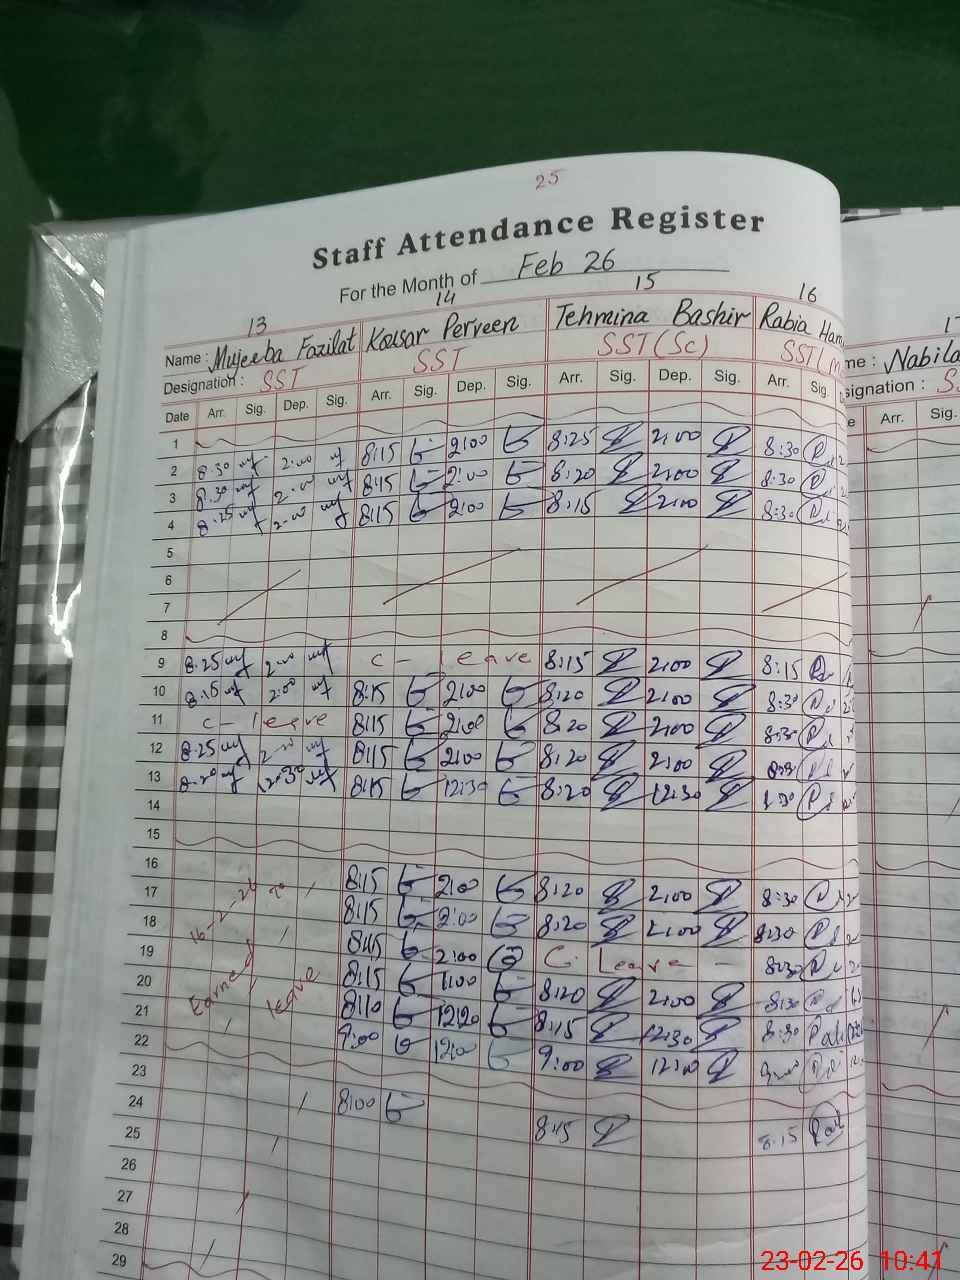 25
Staff Attendance Register
For the Month of Feb 26
13 14 15 16
Name : Mujeeba Fazilat Kousar Perveen Tehmina Bashir Rabia Ham
Designation : SST SST SST (Sc) SST (
Date Arr. Sig. Dep. Sig. Arr. Sig. Dep. Sig. Arr. Sig. Dep. Sig. Arr. Sig.
me : Nabila
signation : S
Arr. Sig.
1
2 8:30 2:00 8:15 2:00 8:25 2:00 8:30
3 8:30 2:00 8:15 2:00 8:20 2:00 8:30
4 8:25 2:00 8:15 2:00 8:15 2:00 8:30
5
6
7
8
9 8:25 2:00 C - leave 8:15 2:00 8:15
10 8:15 2:00 8:15 2:00 8:20 2:00 8:30
11 C - leave 8:15 2:00 8:20 2:00 8:30
12 8:25 2:00 8:15 2:00 8:20 2:00
13 8:20 12:30 8:15 12:30 8:20 12:30 8:30
14
15
16 16-2-26 8:15 2:00 8:20 2:00 8:30
17 8:15 2:00 8:20 2:00 8:30
18 8:15 2:00 C. Leave - 8:30
19 Earned leave 8:15 1:00 8:20 2:00 8:30
20 8:10 12:20 8:15 12:30 8:30
21 9:00 12:00 9:00 12:00
22
23 8:00 8:15 8:15
24
25
26
27
28
29
23-02-26 10:41